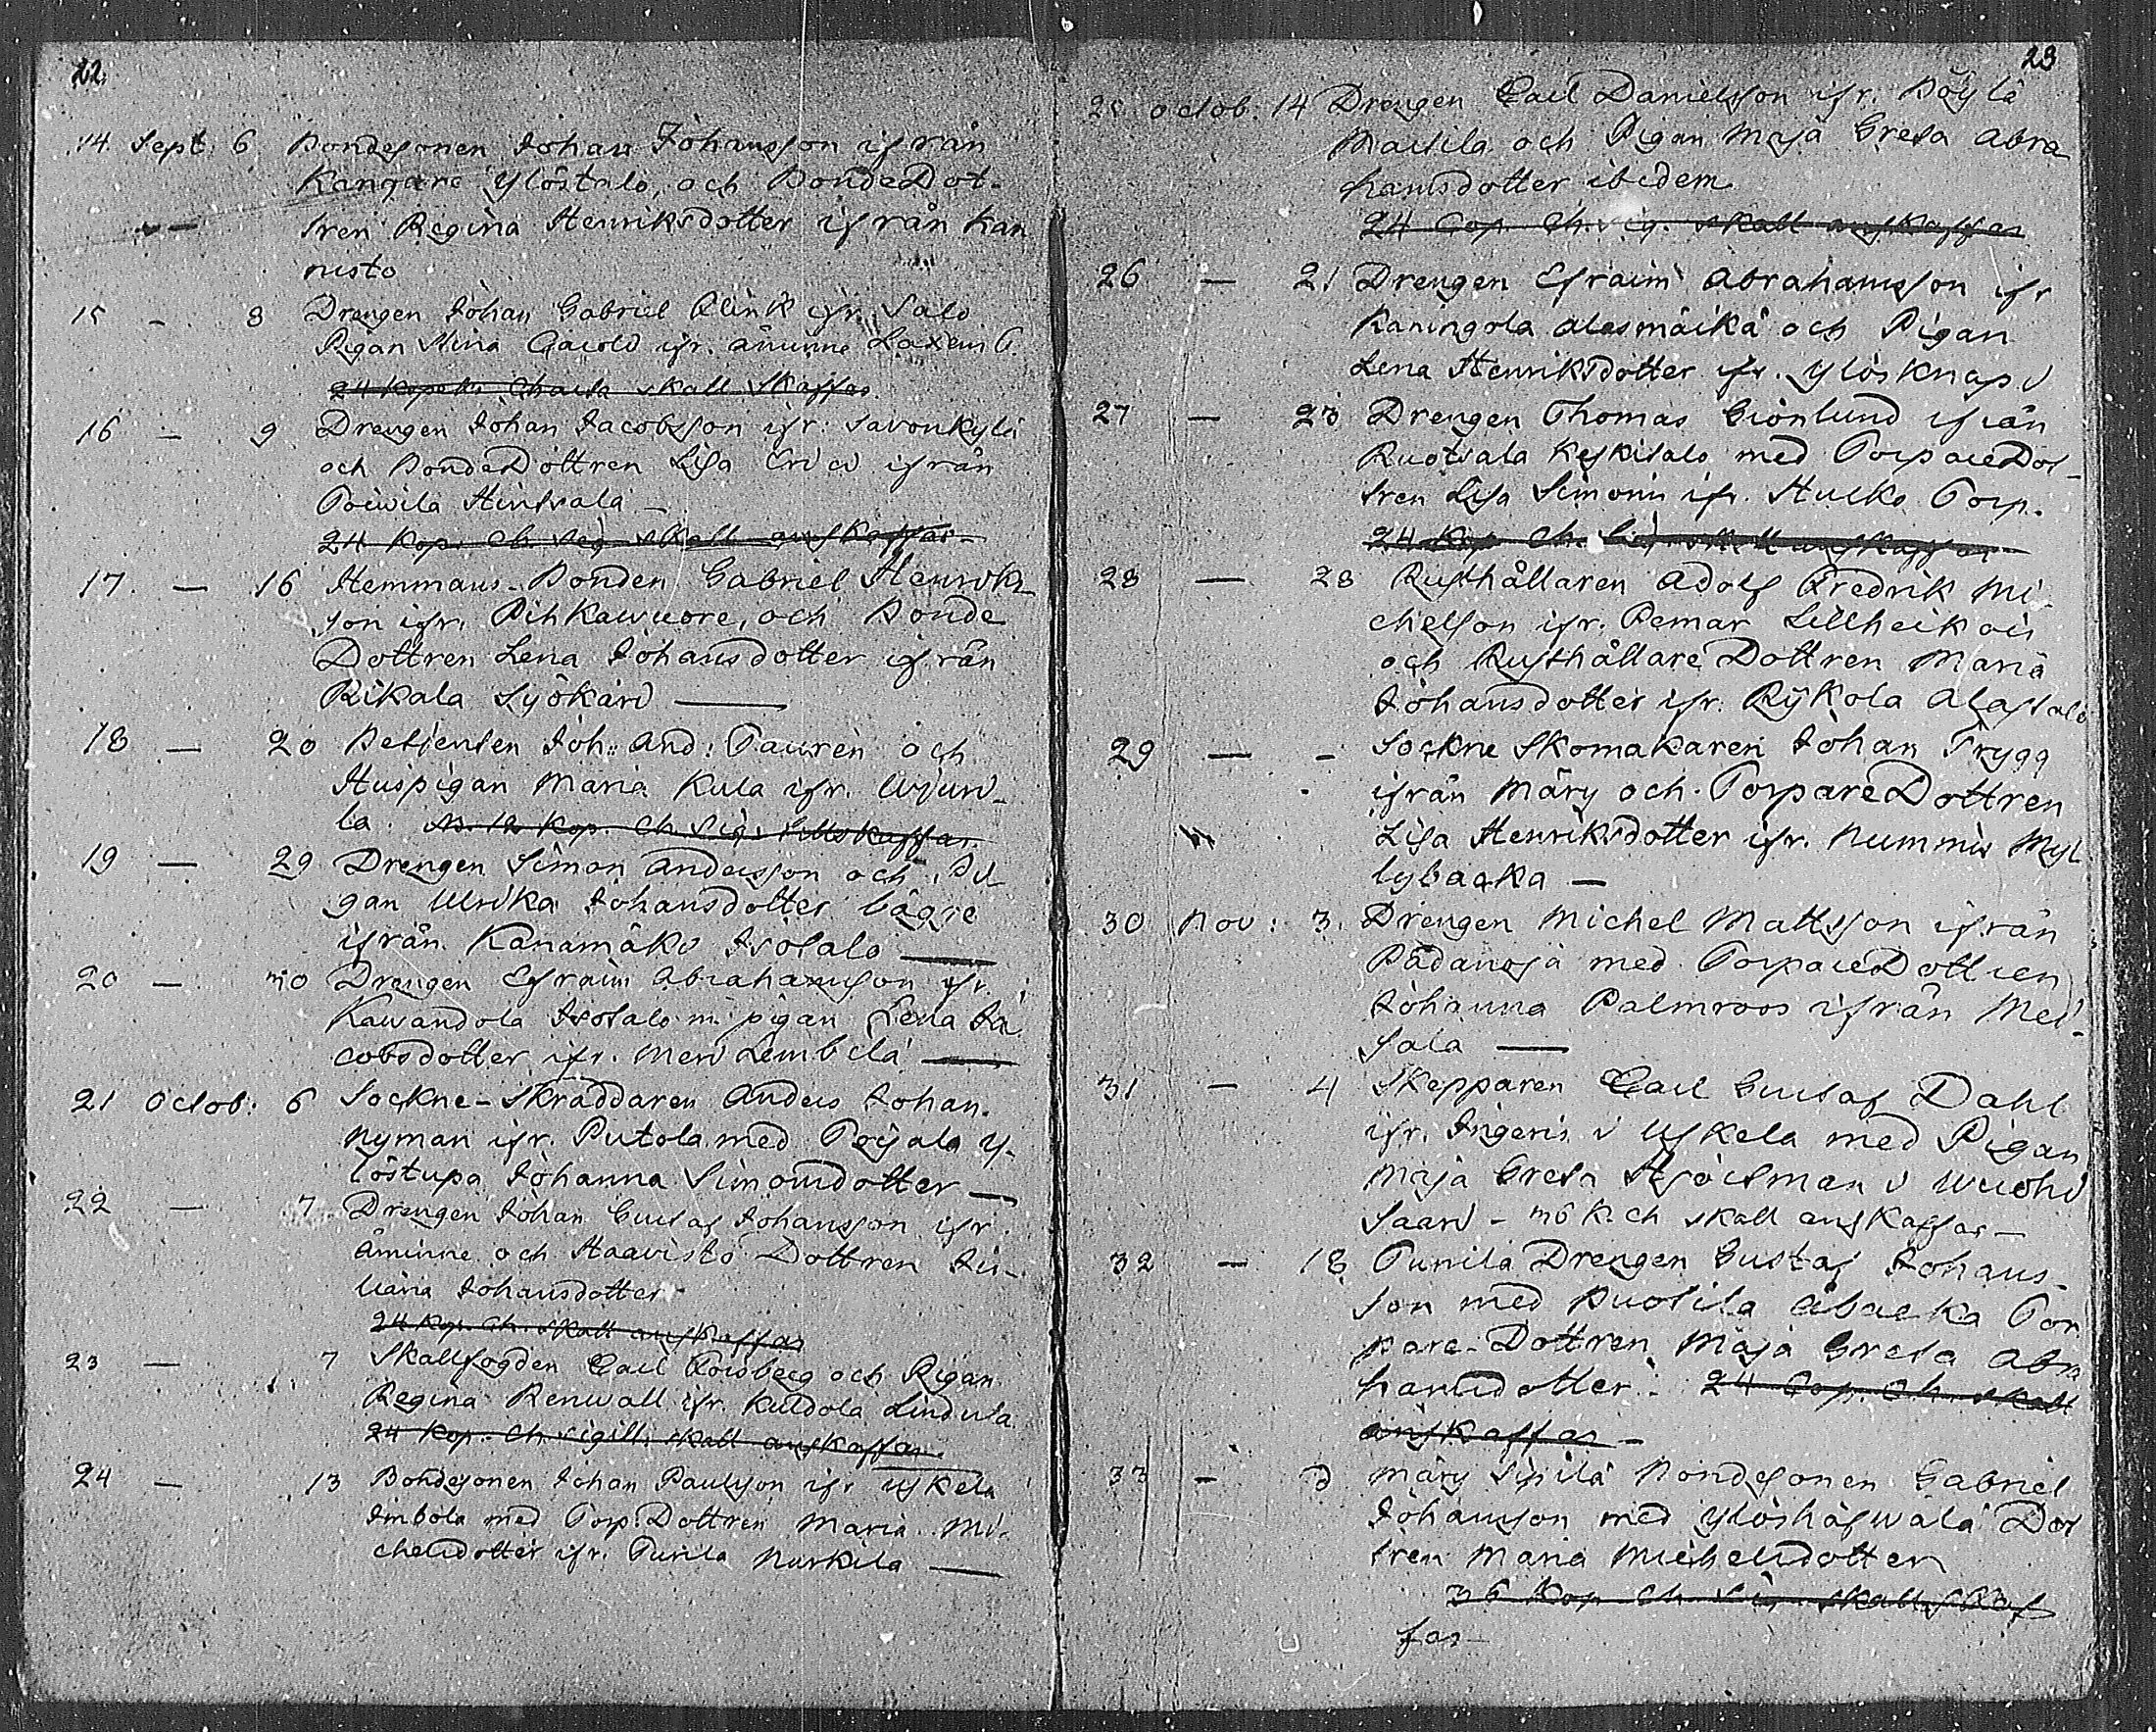 22.
14 Sept. 6 Bondesonen Johan Johansson ifrån
Kangare Ylöstalo, och BondeDot-
tren Regina Henriksdotter ifrån Kan
nisto
15 - 8 Drengen Johan Gabriel Klink ifr. Salo
Pigan Stina Gavold ifr. åminne
24 Kopek. Charta skall skaffas
16 — 9 Drengen Johan Jacobsson ifr. Savonkylä
och BondeDottren Lisa ifrån
24 Kop. Ch. sig. skall anskaffas
17. — 16 Hemmans-Bonden Gabriel Henriks
son ifr. Pihkawuore, och Bonde
Dottren Lena Johansdotter ifrån
Rikala Syökäri —
18 — 20 Betjenten Joh: And: Tauren och
Huspigan Maria Kula ifr. Wiuri-
la. Kop. Ch. Sig.
19 — 29 Drengen Simon Andersson och Pi
gan Ulrika Johansdotter
ifrån Kanamäki Isotalo —
20 — 30 Drengen Efraim Abrahamsson ifr.
Kawandola Isotalo m. pigan Lena Ja
cobsdotter ifr. Meri Lembelä —
21 Octob: 6 Sockne-Skräddaren Anders Johan
Nyman ifr. Putola med Y-
löstupa Johanna Simonsdotter —
22 — 7 Drengen Johan Gustaf Johansson ifr.
Åminne och Haavisto Dottren Ju-
liana Johansdotter
24 Kop. Ch. skall anskaffas
23 — 7 Skallfogden Carl Forsberg och Pigan
Regina Renwall ifr. Kuldola Lindula
24 Kop. Ch. sigill. skall anskaffas.
24 — 13 Bondesonen Johan Paulsson ifr. Uskela
Inbola med Torp.Dottren Maria Mi-
chelsdotter ifr. Turila Nurkila —
23
25 octob. 14 Drengen Carl Danielsson ifr. Pöylä
Mattila och Pigan Maja Greta Abra
hamsdotter ibidem
24 Cop. Ch. sig. skall anskaffas
26 — 21 Drengen Efraim Abrahamsson ifr
Kaningola och Pigan
Lena Henriksdotter ifr. Ylösknapi
27 — 23 Drengen Thomas Grönlund ifrån
Ruotsala Keskitalo med TorpareDot-
tren Lisa Simonis ifr. Torp.
24 Kop Ch. sig. skall anskaffas
28 — 28 Rusthållaren Adolf Fredrik Mi-
chelsson ifr. Pemar Lillheikois
och RusthållareDottren Maria
Johansdotter ifr. Rÿkola Alastalo
29 — - Sockne Skomakaren Johan Trygg
ifrån Märy och TorpareDottren
Lisa Henriksdotter ifr. Nummis Myl
lybacka —
30 Nov: 3. Drengen Michel Mattsson ifrån
Pådanoja med TorpareDottren
Johanna Palmroos ifrån Met-
sala —
31 — 4 Skepparen Carl Gustaf Dahl
ifr. Ingeris i Uskela med Pigan
Maja Greta i Wuohi
Saari - K. ch skall anskaffas —
32 — 18 Punila Drengen Gustaf Johans-
son med Ruotila Åbacka Tor
pare-Dottren Maja Greta Abra
hamsdotter. 24 Cop. Ch. skall
anskaffas —
33 — D Märy Sipilä Bondesonen Gabriel
Johansson med Ylöshäfwälä Dot
tren Maria Michelsdotter
36 Kop Ch. Sig. skall skaf
fas —